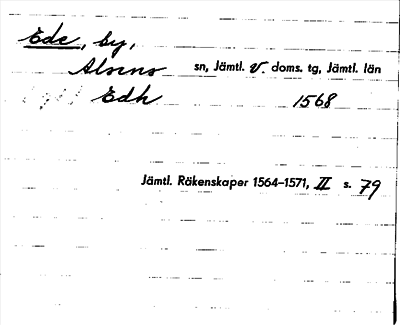 Ede, by,
Alsens sn, Jämtl. v. doms. tg, Jämtl. län
Edh 1568
Jämtl. Räkenskaper 1564-1571, II s. 79